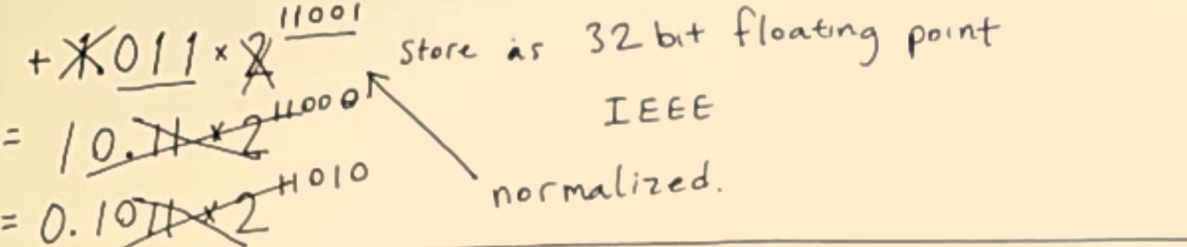 + 1.011 × 2^11001 Store as 32 bit floating point
IEEE
= 10.11 × 2^11000
normalized.
= 0.1011 × 2^11010